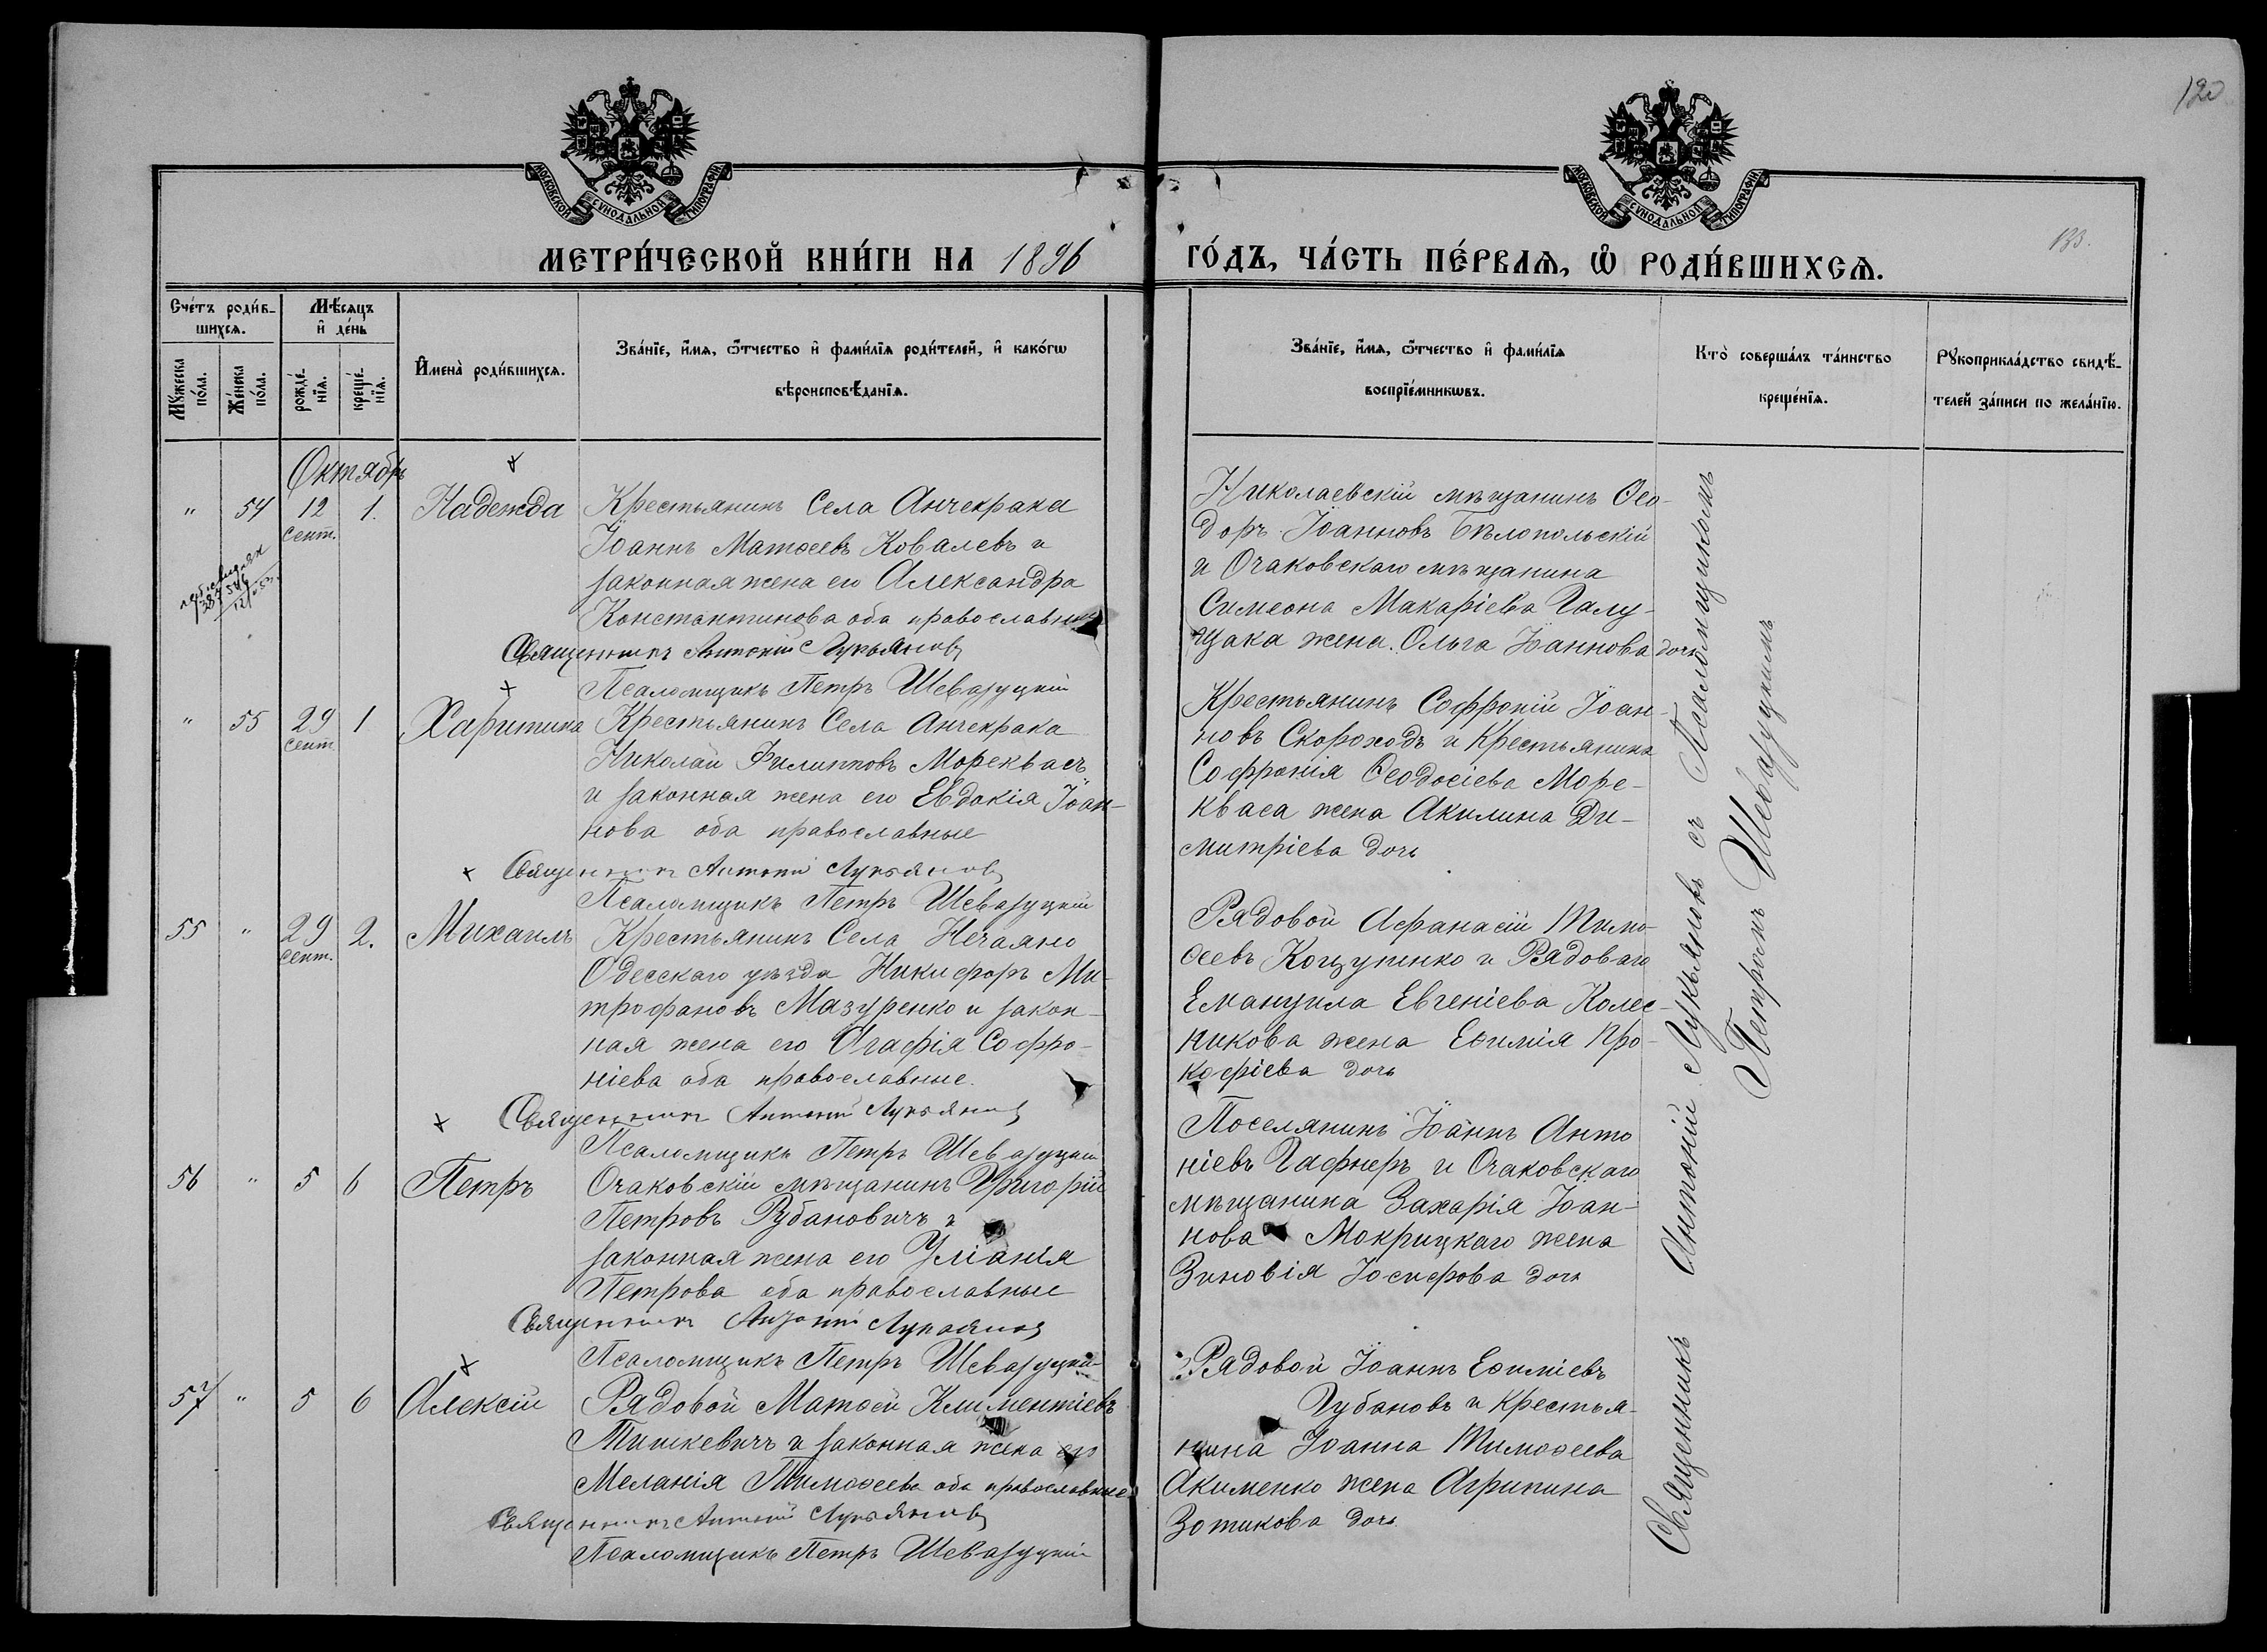 120
133.
МОСКОВСКОЙ СѴНОДАЛЬНОЙ ТИПОГРАФІИ
МОСКОВСКОЙ СѴНОДАЛЬНОЙ ТИПОГРАФІИ
МЕТРИ́ЧЕСКОЙ КНИ́ГИ НА 1896 ГО́ДЪ, ЧА́СТЬ ПЕ́РВАѦ, Ѡ РОДИ́ВШИХСѦ.
Сче́тъ роди́в-
шихсѧ.
Мѣ́сѧцъ
и҆ де́нь
Мꙋ́жеска
по́ла.
Же́нска
по́ла.
рожде́-
нїѧ.
креще́-
нїѧ.
И҆мена̀ роди́вшихсѧ.
Зва́нїе, и҆́мѧ, ѻ҆́тчество и҆ фами́лїѧ роди́телей, и҆ како́гѡ
вѣроисповѣ́данїѧ.
Зва́нїе, и҆́мѧ, ѻ҆́тчество и҆ фами́лїѧ
воспрїе́мникѡвъ.
Кто̀ соверша́лъ та́инство
креще́нїѧ.
Рꙋкоприкла́дство свидѣ́-
телей за́писи по жела́нїю.
Октябрь
" 54 12 1. Надежда Крестьянинъ Села Анчекрака
сент.
Іоаннъ Матѳеевъ Ковалевъ и
законная жена его Александра
Константинова оба православные
Священникъ Антоній Лукьяновъ
Псаломщикъ Петръ Шевазуцкій
Николаевскій мѣщанинъ Ѳео-
доръ Іоанновъ Бѣлопольскій
и Очаковскаго мѣщанина
Симеона Макаріева Галу-
щака жена Ольга Іоаннова дочь
" 55 29 1 Харитина Крестьянинъ Села Анчекрака
сент.
Николай Филипповъ Мореквасъ
и законная жена его Евдокія Іоан-
нова оба православные
Священникъ Антоній Лукьяновъ
Псаломщикъ Петръ Шевазуцкій
Крестьянинъ Софроній Іоан-
новъ Скороходъ и Крестьянина
Софронія Ѳеодосіева Море-
кваса жена Акилина Ди-
митріева дочь
55 " 29 2. Михаилъ Крестьянинъ Села Нечаяно
сент.
Одесскаго уѣзда Никифоръ Ми-
трофановъ Мазуренко и закон-
ная жена его Агафія Софро-
ніева оба православные.
Священникъ Антоній Лукьяновъ
Псаломщикъ Петръ Шевазуцкій
Рядовой Афанасій Тимо-
ѳеевъ Кощупенко и Рядоваго
Емануила Евгеніева Колес-
никова жена Еѳимія Про-
кофіева дочь
56 " 5 6 Петръ Очаковскій мѣщанинъ Григорій
Петровъ Рубановичъ и
законная жена его Уліанія
Петрова оба православные
Священникъ Антоній Лукьяновъ
Псаломщикъ Петръ Шевазуцкій
Поселянинъ Іоаннъ Анто
ніевъ Гафнеръ и Очаковскаго
мѣщанина Захарія Іоан-
нова Мокрицкаго жена
Зиновія Іосифова дочь
57 " 5 6 Алексій Рядовой Матѳей Климентіевъ
Тишкевичъ и законная жена его
Меланія Тимоѳеева оба православные
Священникъ Антоній Лукьяновъ
Псаломщикъ Петръ Шевазуцкій
Рядовой Іоаннъ Еѳиміевъ
Губановъ и крестья-
нина Іоанна Тимоѳеева
Акименко жена Агрипина
Зотикова дочь
Священникъ Антоній Лукьяновъ съ Псаломщикомъ
Петромъ Шевазуцкимъ